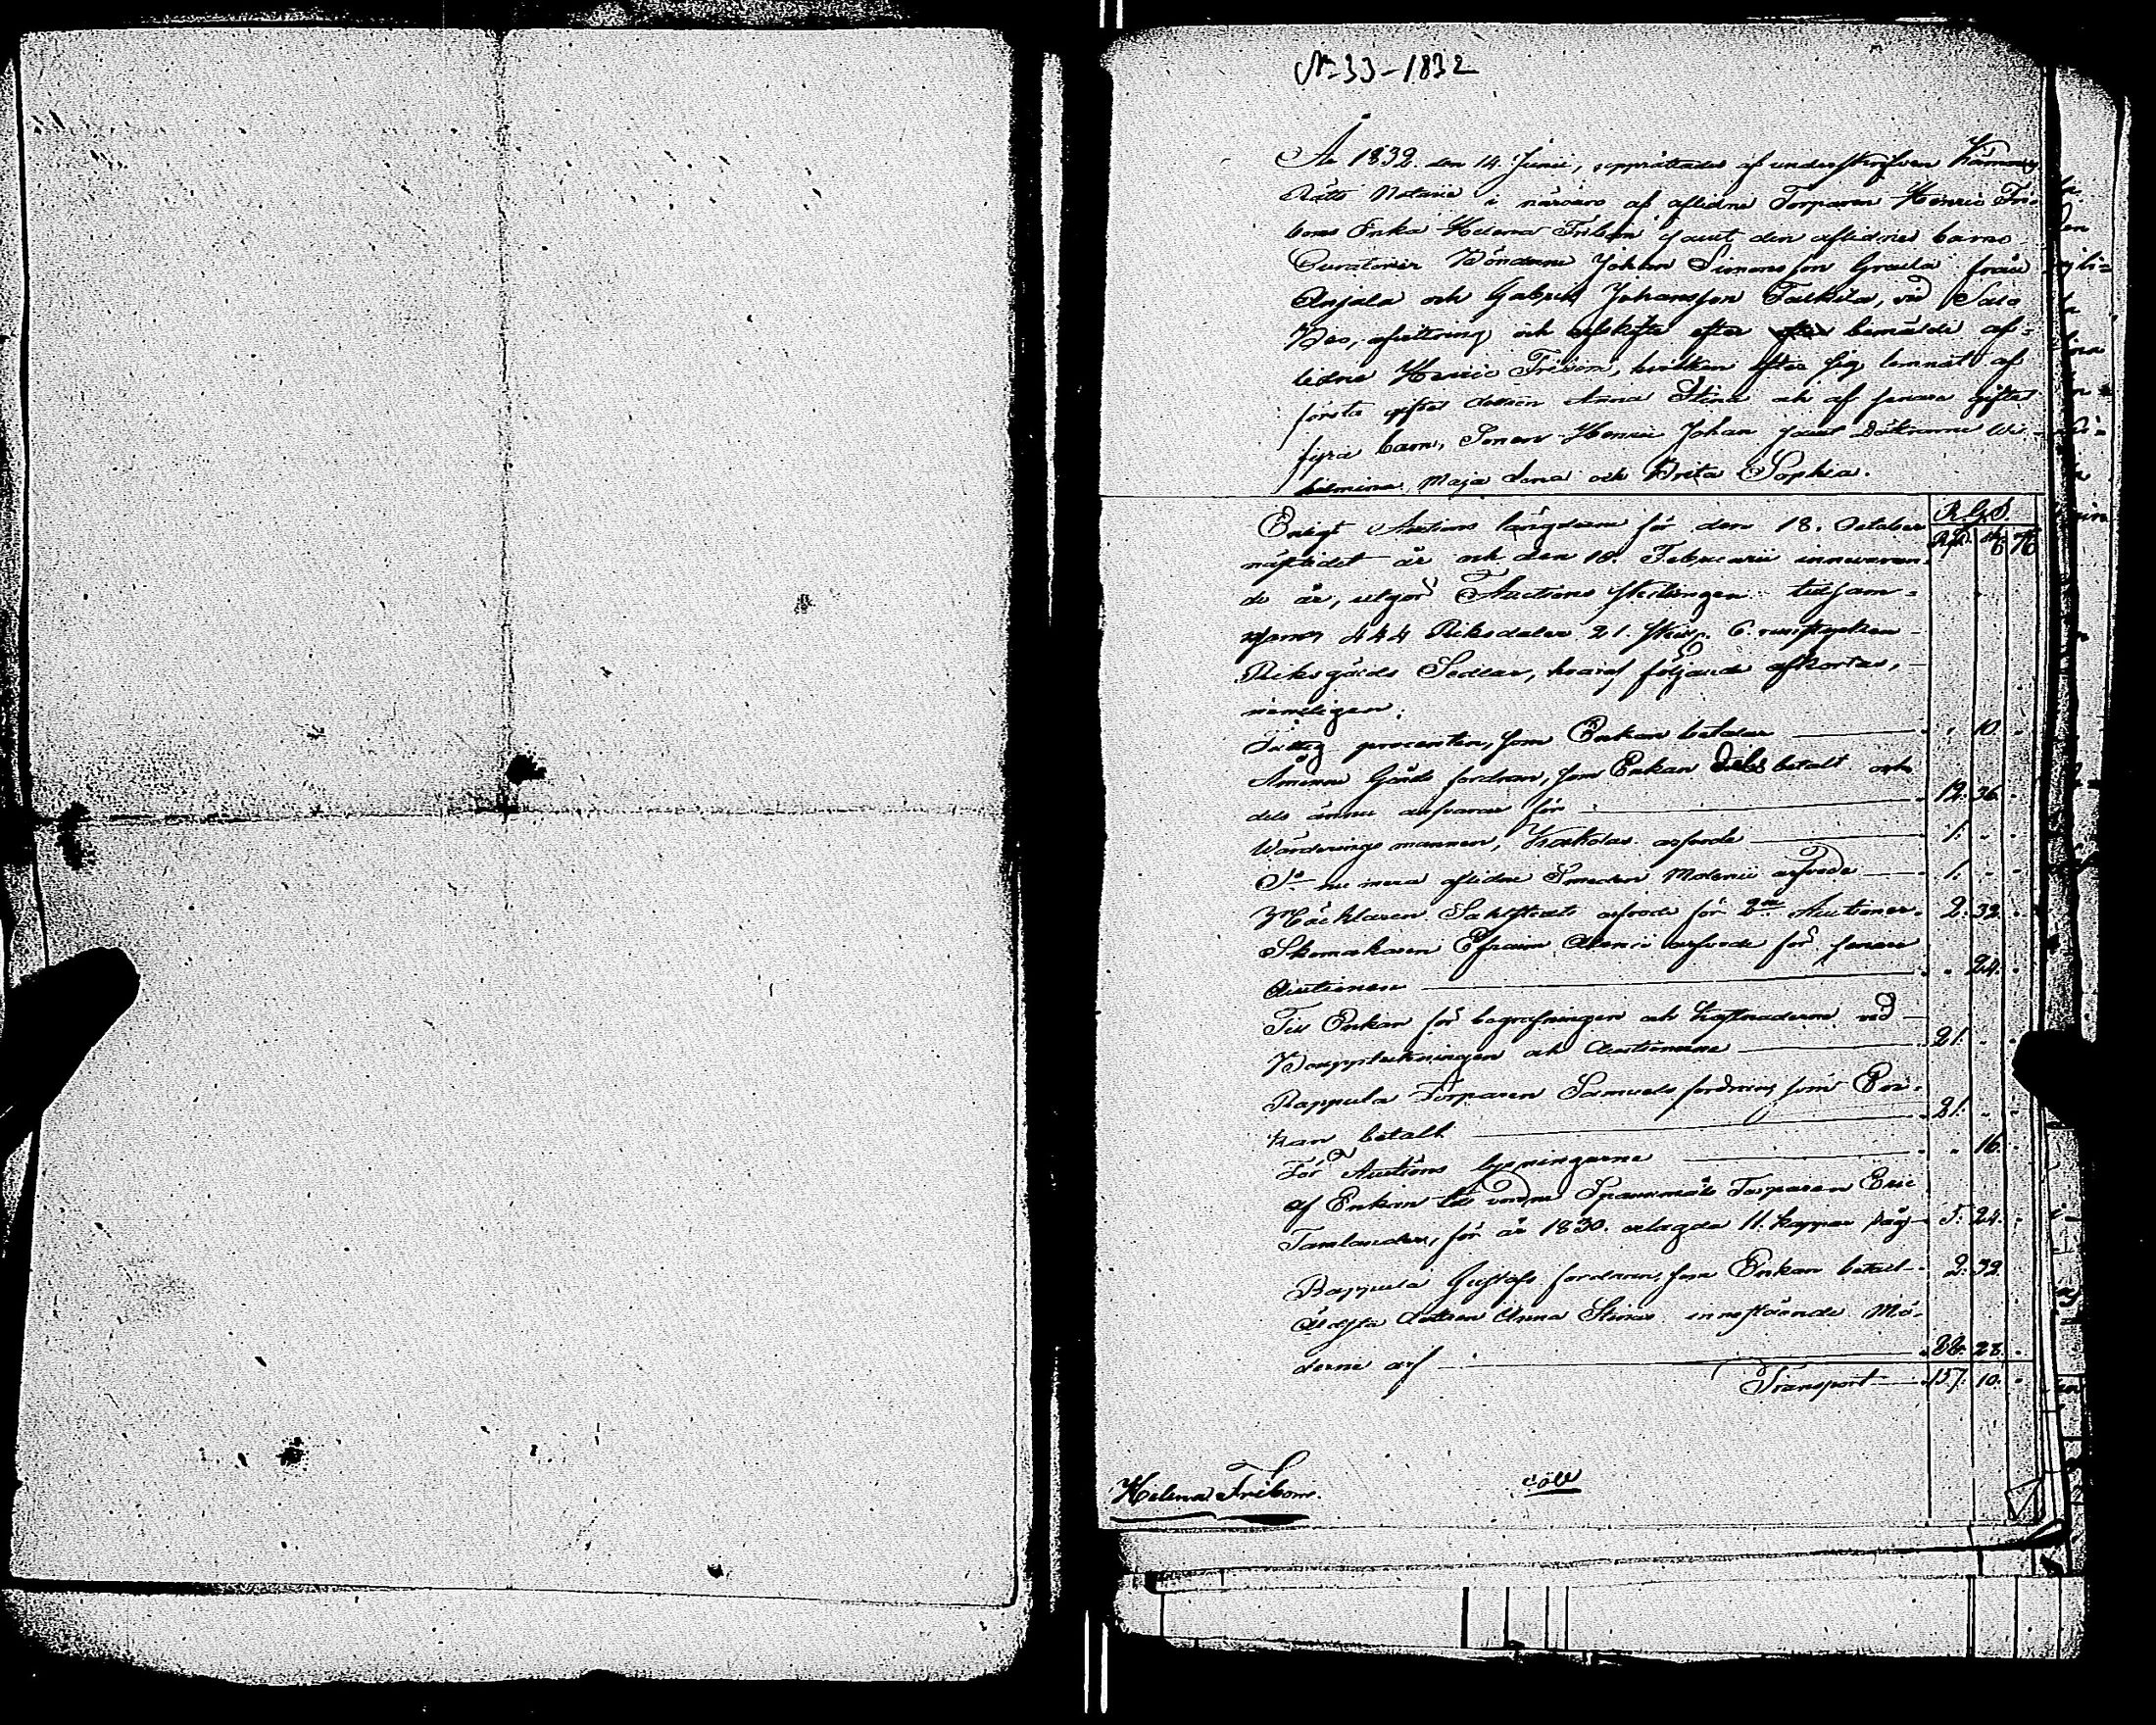 No 33-1832
År 1832. den 14. Junii, upprättades af underskrifven Kämners
Rätts Notarie i närvaro af aflidne Torparen Henric Fri-
boms Enka Helena Fribom samt den aflidnes barns
Curatorer Bönderne Johan Simonsson Graula från
Anjala och Gabriel Johansson Talkila, vid Salo
Bro, afvittring och arfskifte efter bemälde af-
lidne Henric Fribom, hvilken efter sig lemnat af
första giftet dottren Anna Stina och af senare giftet
fyra barn, Sonen Henric Johan samt Döttrarne Wil-
helmina, Maja Lena och Brita Sophia.
R.G.S.
Rdr. sk. rst
Enligt Auctions längderne för den 18. October
nästledet år och den 18. Februarii innevaran-
de år, utgör Auctions skillingen tillsam-
mans 444 Riksdaler 21. skill. 6. runstycken
Riksgälds Sedlar, hvaraf följande afkortas,
nemligen:
Fattig procenten, som Enkan betalar " 10 "
Åminne Gårds fordran, som Enkan dels betalt och
dels ännu ansvarar för 12. 36. "
Wärderings mannen, arfvode 1. " "
Do nu mera aflidne Smeden Molenii arfvode 1. " "
Mäcklaren Sahlstedts arfvode för 2ne Auctioner 2. 32. "
Skomakaren Efraim Alenii arfvode för senare
Auctionen " 24. "
Till Enkan för begrafningen och kostnaderne vid
Bouppteckningen och Auctionerne 21. " "
Rappula Torparen Samuels fordring som En-
kan betalt 21. " "
För Auctions lysningarne " 16. "
Af Enkan till Torparen Eric
Tamlander, för år 1830. erlagda 11. kappar råg 5. 24. "
Rappula Gustafs fordran, som Enkan betalt 2. 32.
Äldsta dottren Anna Stinas innestående Mö-
derne arf 88. 28. "
Transport 157. 10. "
Helena Fribom.